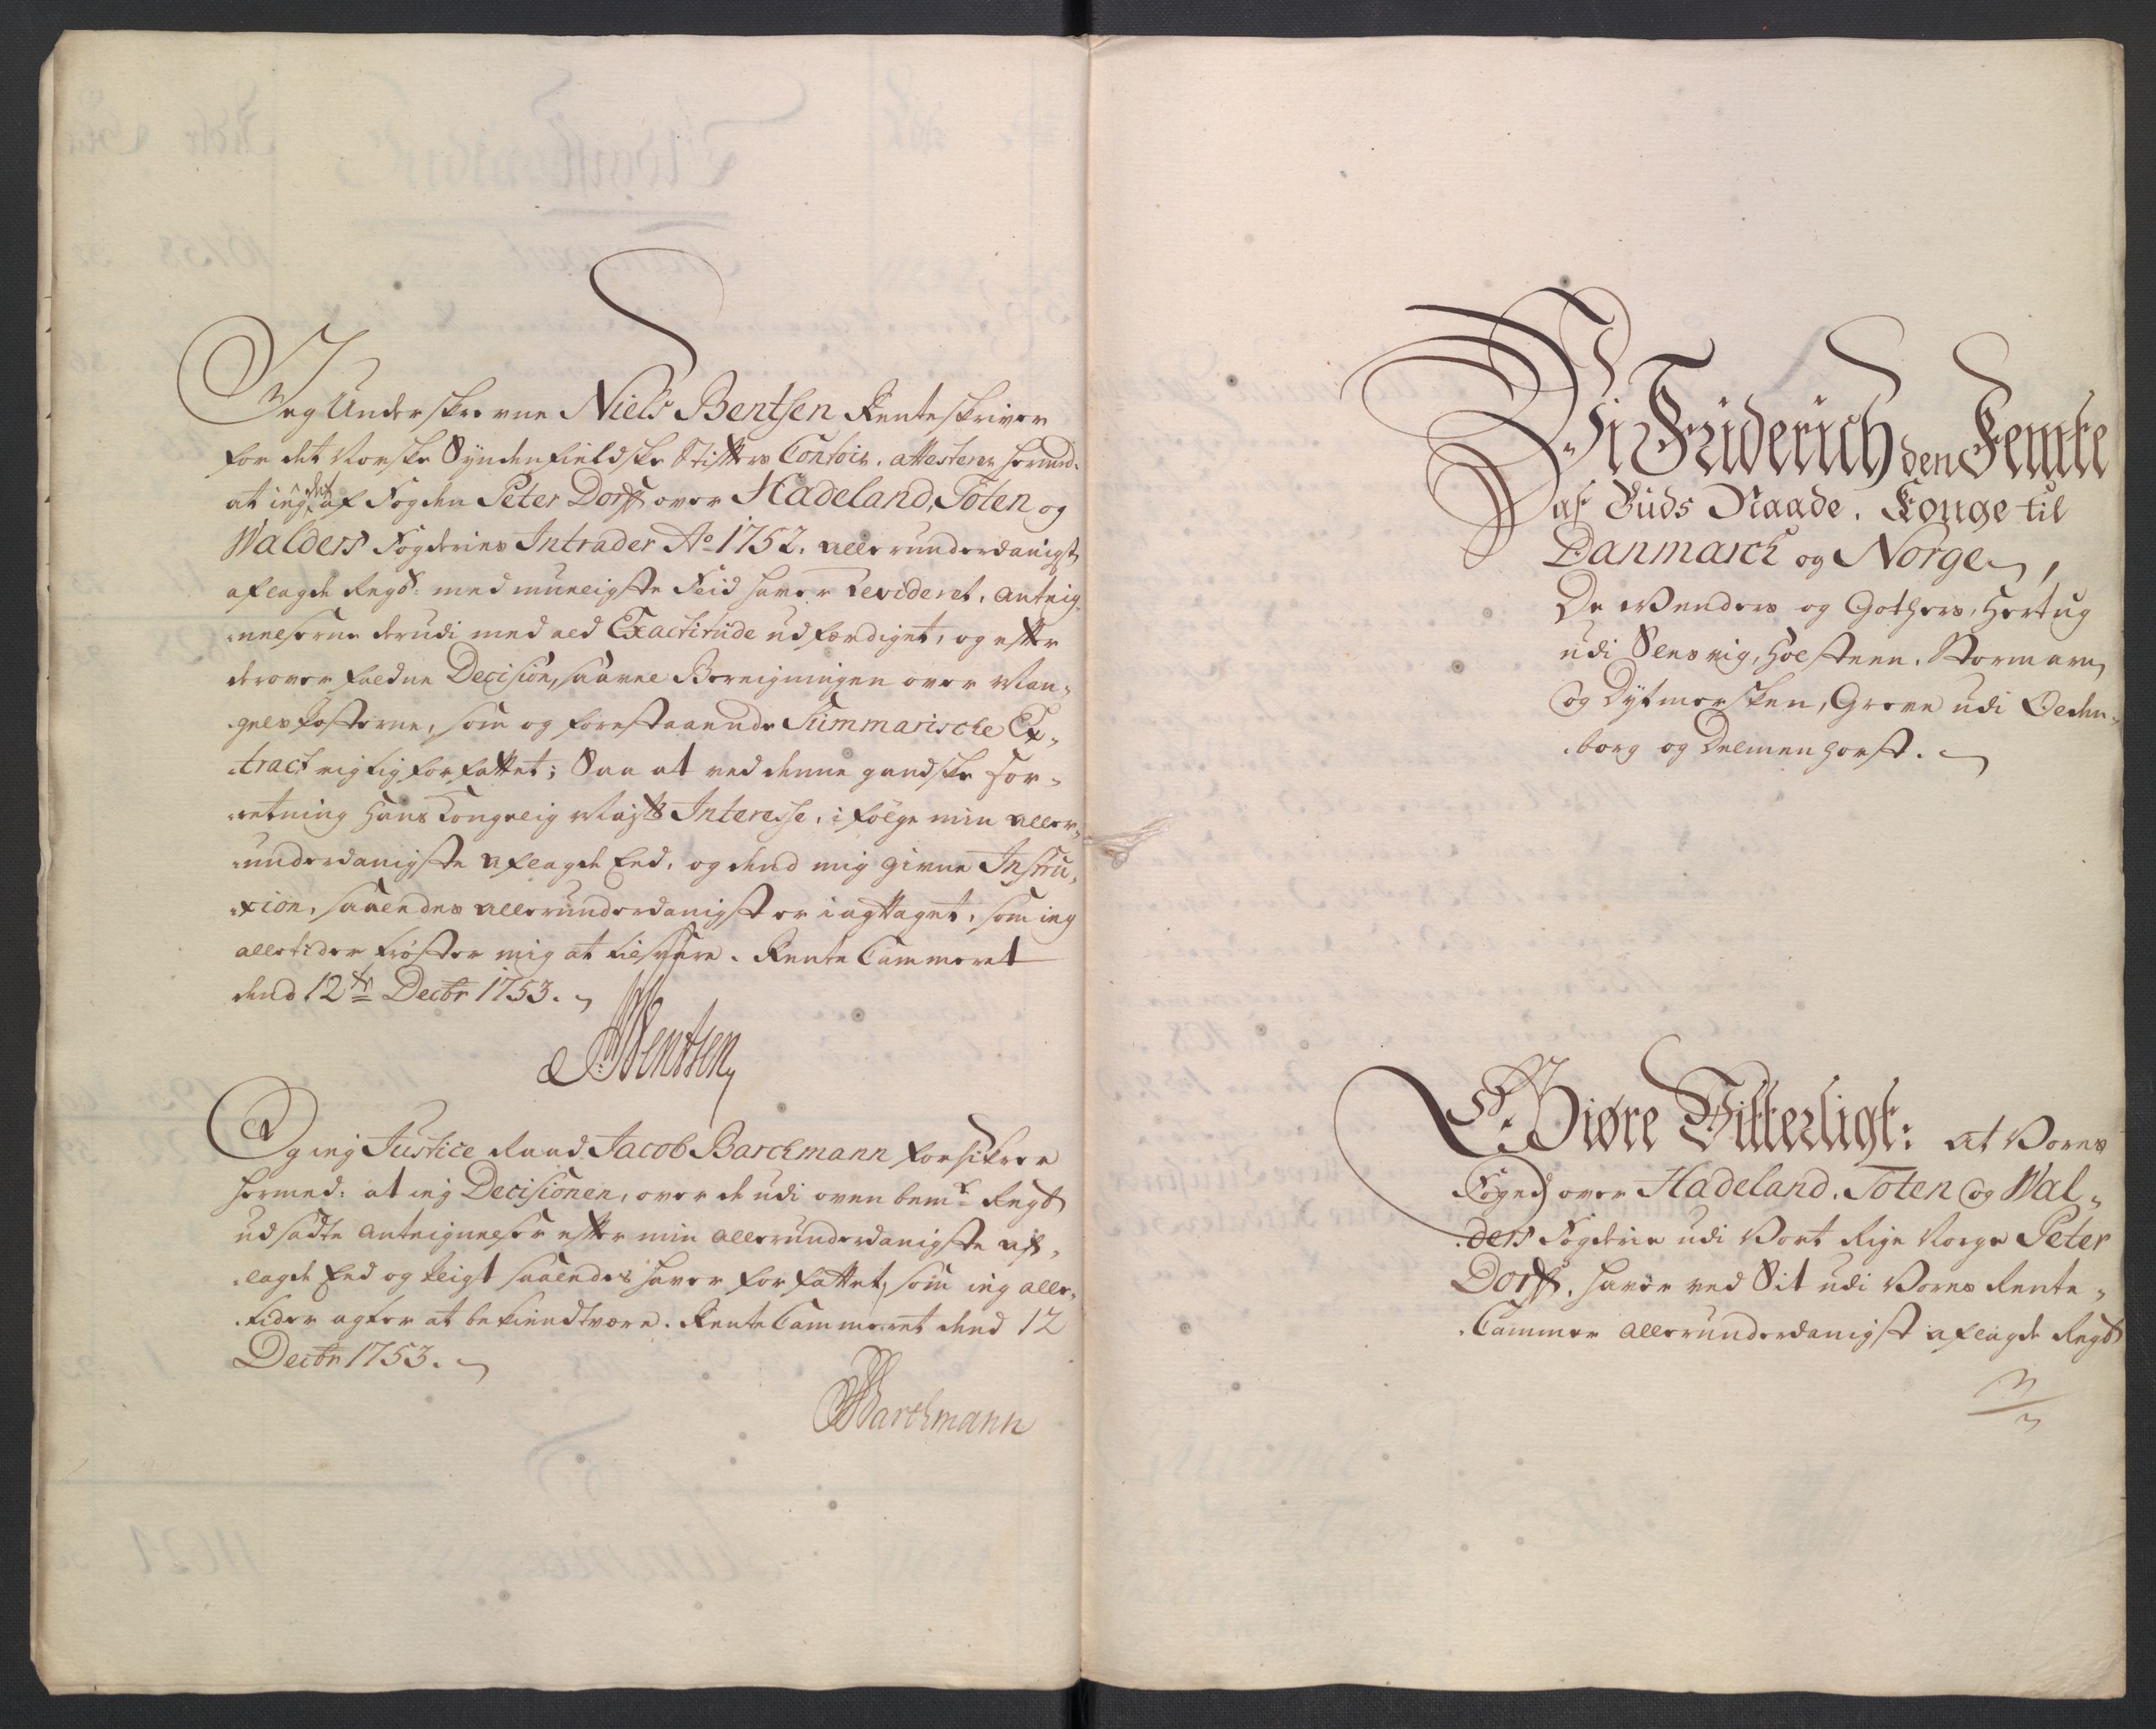 Jeg Underskrevne Niels Bentsen Renteskriver
for det Norske Syndenfieldske Stifters Contoir, attesterer hermed:
at ieg det af Fogden Peter Dorff over Hadeland, Toten og
Walders Fogderies Intrader Ao 1752. allerunderdanigst
aflagde Regsk: med mueligste Flid haver Revideret, Anteig-
-nelserne derudi med all Exactitude udfærdiget, og efter
derover faldne Decision, saavel Bereigningen over Man-
-gelsposterne, som og forestaaende Summarische Ex-
-tract rigtig forfattet; Saa at ved denne gandske For-
-retning Hans Kongelig Mayts Interesse, i følge min aller-
-underdanigste aflagde Eed, og dend mig givne Instru-
-xion, saaledes allerunderdanigst er iagttaget, som ieg
alletider trøster mig at tilsvare. Rente Cammeret
dend 12te Decbr 1753.
NBentsen
Og ieg Justice Raad Jacob Barckmann forsikrer
hermed: at ieg Decisionen, over de udi ovenbemte Regsk
udsadte Anteignelser efter min allerunderdanigste af-
-lagde Eed og Pligt saaledes haver forfattet, som ieg alle-
-tider agter at bekiendt være. Rente Cammeret dend 12
Decbr 1753.
JBarchmann
Vi Friderich den Femte
af Guds Naade, Konge til
Danmarck og Norge,
De Wenders og Gothers, Hertug
udi Slesvig, Holsteen, Stormarn
og Dytmersken, Greve udi Olden-
-borg og Delmenhorst.
Giøre Vitterligt: At Vores
Foged over Hadeland, Toten og Wal-
-ders Fogderie udi Vort Rige Norge Peter
Dorff, haver ved Sit udi Vores Rente-
-Cammer allerunderdanigst aflagde Regsk